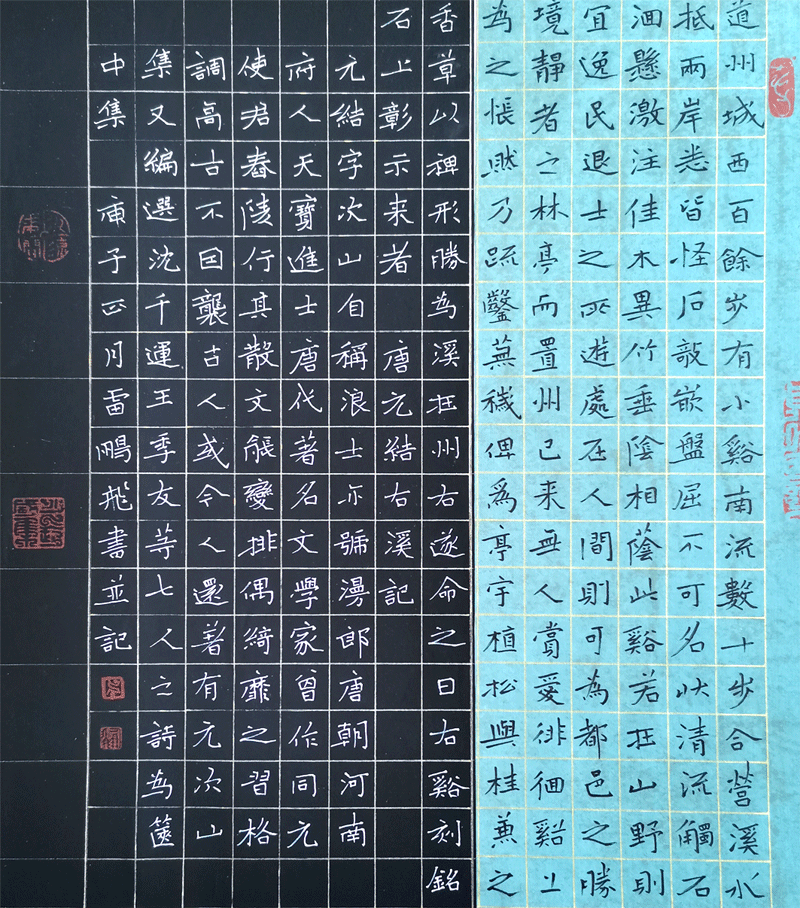 道州城西百餘步有小谿南流數十步合營溪水
抵兩岸悉皆怪石敧嵌盤屈不可名狀清流觸石
洄懸激注佳木異竹垂陰相蔭此谿若在山野則
宜逸民退士之所遊處在人間則可為都邑之勝
境靜者之林亭而置州已來無人賞愛徘徊谿上
為之悵然乃疏鑿蕪穢俾為亭宇植松與桂兼之
香草以裨形勝為溪在州右遂命之曰右谿刻銘
石上彰示來者 唐元結右溪記
元結字次山自稱浪士亦號漫郎唐朝河南
府人天寶進士唐代著名文學家曾作同元
使君舂陵行其散文能變排偶綺靡之習格
調高古不囙襲古人或今人還著有元次山
集又編選沈千運王季友等七人之詩為篋
中集 庚子正月雷鵬飛書並記